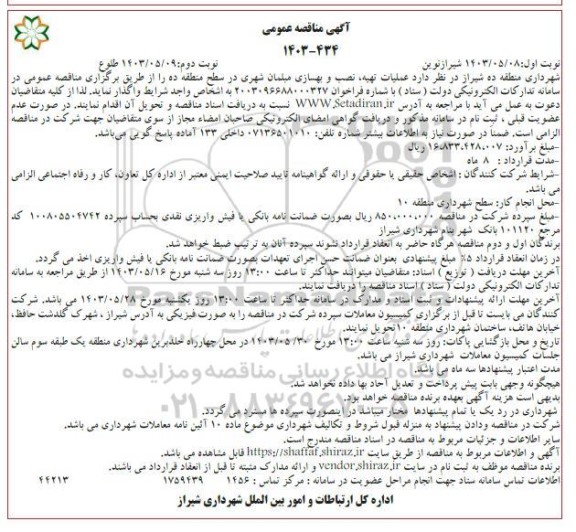 آگهی مناقصه عمومی
۱۴۰۳-۴۳۴
نوبت اول:۱۴۰۳/۰۵/۰۸ شیرازنوین
نوبت دوم:۱۴۰۳/۰۵/۰۹ طلوع
شهرداری منطقه ده شیراز در نظر دارد عملیات تهیه، نصب و بهسازی مبلمان شهری در سطح منطقه ده را از طریق برگزاری مناقصه عمومی در
سامانه تدارکات الکترونیکی دولت ( ستاد ) با شماره فراخوان ۲۰۰۳۰۹۶۶۸۸۰۰۰۳۲۷ به اشخاص واجد شرایط واگذار نماید. لذا از کلیه متقاضیان
دعوت به عمل می آید با مراجعه به آدرس WWW.Setadiran.ir نسبت به دریافت اسناد مناقصه و تحویل آن اقدام نمایند. در صورت عدم
عضویت قبلی ، ثبت نام در سامانه مذکور و دریافت گواهی امضای الکترونیکی صاحبان امضاء مجاز از سوی متقاضیان جهت شرکت در مناقصه
الزامی است. ضمنا در صورت نیاز به اطلاعات بیشتر شماره تلفن: ۰۷۱۳۶۵۰۱۰۱۰ داخلی ۱۳۳ آماده پاسخ گویی می‌باشد.
-مبلغ برآورد: ۱۶،۸۳۳،۴۲۸،۰۰۷ ریال
-مدت قرارداد : ۸ ماه
-شرایط شرکت کنندگان : اشخاص حقیقی یا حقوقی و ارائه گواهینامه تایید صلاحیت ایمنی معتبر از اداره کل تعاون، کار و رفاه اجتماعی الزامی
می باشد.
-محل انجام کار: سطح شهرداری منطقه ۱۰
-مبلغ سپرده شرکت در مناقصه ۸۵۰،۰۰۰،۰۰۰ ریال بصورت ضمانت نامه بانکی یا فیش واریزی نقدی بحساب سپرده ۱۰۰۸۰۵۵۰۴۷۴۲ کد
مرجع ۱۰۱۱۲۰ بانک شهر بنام شهرداری شیراز
برندگان اول و دوم مناقصه هرگاه حاضر به انعقاد قرارداد نشوند سپرده آنان به ترتیب ضبط خواهد شد.
در زمان انعقاد قرارداد ۵٪ مبلغ پیشنهادی بعنوان ضمانت حسن اجرای تعهدات بصورت ضمانت نامه بانکی یا فیش واریزی اخذ می گردد.
آخرین مهلت دریافت ( توزیع ) اسناد: متقاضیان میتوانند حداکثر تا ساعت ۱۳:۰۰ روز سه شنبه مورخ ۱۴۰۳/۰۵/۱۶ از طریق مراجعه به سامانه
تدارکات الکترونیکی دولت ( ستاد ) اسناد مناقصه را دریافت نمایند.
آخرین مهلت ارائه پیشنهادات و ثبت اسناد و مدارک در سامانه حداکثر تا ساعت ۱۳:۰۰ روز یکشنبه مورخ ۱۴۰۳/۰۵/۲۸ می باشد. شرکت
کنندگان می بایست تا قبل از برگزاری کمیسیون معاملات سپرده شرکت در مناقصه را به صورت فیزیکی به آدرس شیراز ، شهرک گلدشت حافظ،
خیابان هاتف، ساختمان شهرداری منطقه ۱۰تحویل نمایند.
تاریخ و محل بازگشایی پاکات: روز سه شنبه ساعت ۱۳:۰۰ مورخ ۱۴۰۳/۰۵/۳۰ در محل چهارراه خلدبرین شهرداری منطقه یک طبقه سوم سالن
جلسات کمیسیون معاملات شهرداری شیراز می باشد.
مدت اعتبار پیشنهادها سه ماه می باشد.
هیچگونه وجهی بابت پیش پرداخت و تعدیل آحاد بها داده نخواهد شد.
بدیهی است هزینه آگهی بعهده برنده مناقصه خواهد بود.
شهرداری در رد یک یا تمام پیشنهادها مختار میباشد در اینصورت سپرده ها مسترد می گردد.
شرکت در مناقصه ودادن پیشنهاد به منزله قبول شروط و تکالیف شهرداری موضوع ماده ۱۰ آئین نامه معاملات شهرداری می باشد.
سایر اطلاعات و جزئیات مربوط به مناقصه در اسناد مناقصه مندرج است.
آگهی و اطلاعات مربوط به مناقصه از طریق سایت https://shaffaf.shiraz.ir قابل مشاهده می باشد.
برنده مناقصه موظف به ثبت نام در سایت vendor.shiraz.ir و ارائه مدارک مثبته تا قبل از انعقاد قرارداد می باشند.
اطلاعات تماس سامانه ستاد جهت انجام مراحل عضویت در سامانه : مرکز تماس : ۱۴۵۶
۱۷۵۹۴۳۹
۴۴۲۱۳
اداره کل ارتباطات و امور بین الملل شهرداری شیراز
پایگاه اطلاع رسانی مناقصه و مزایده
۰۲۱-۸۸۳۴۹۶۷۰-۵